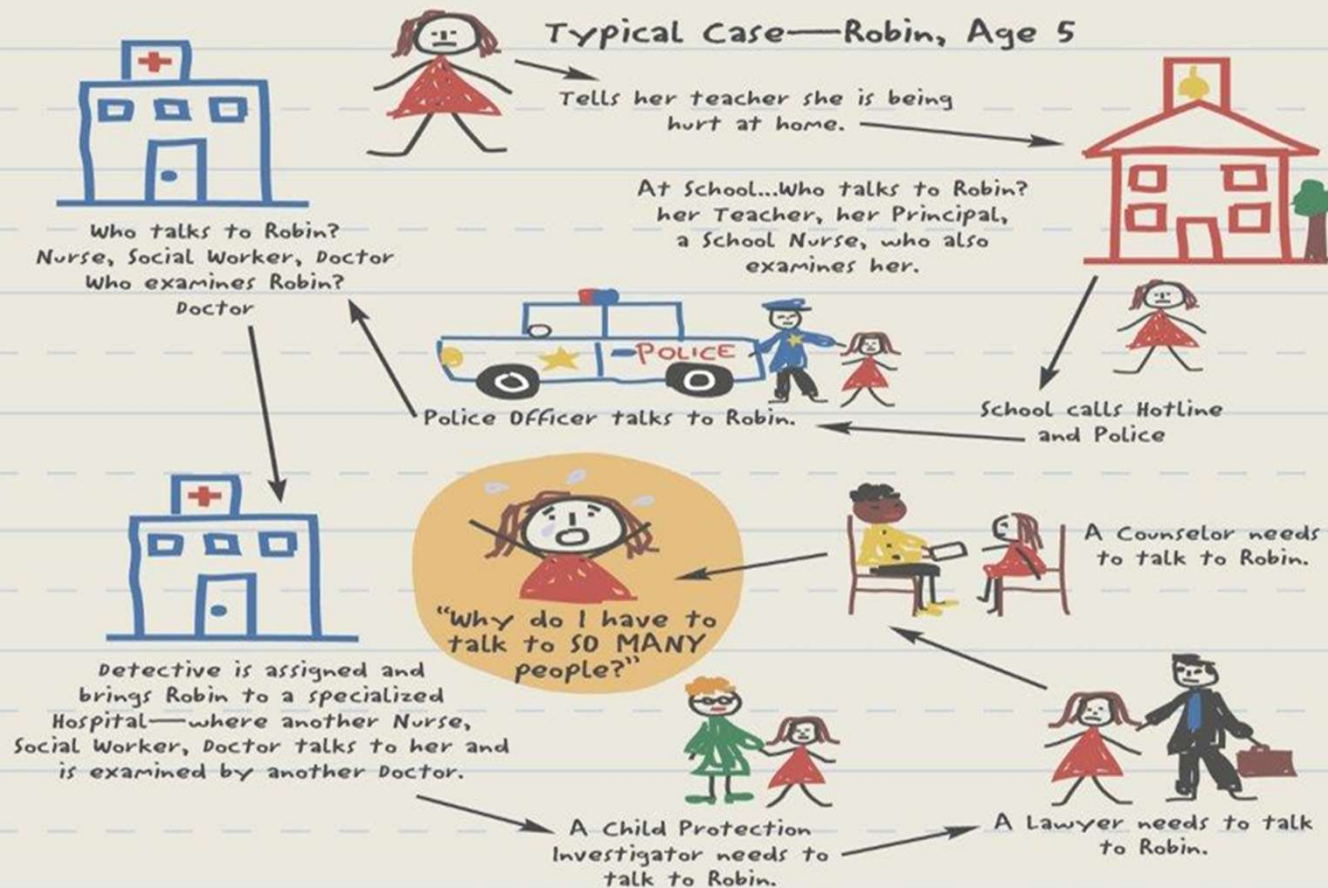 Typical Case—Robin, Age 5
Tells her teacher she is being
hurt at home.
At School...Who talks to Robin?
her Teacher, her Principal,
a School Nurse, who also
examines her.
School calls Hotline
and Police
POLICE
Police Officer talks to Robin.
Who talks to Robin?
Nurse, Social Worker, Doctor
Who examines Robin?
Doctor
Detective is assigned and
brings Robin to a specialized
Hospital—where another Nurse,
Social Worker, Doctor talks to her and
is examined by another Doctor.
A Child Protection
Investigator needs to
talk to Robin.
A Lawyer needs to talk
to Robin.
A Counselor needs
to talk to Robin.
"Why do I have to
talk to SO MANY
people?"